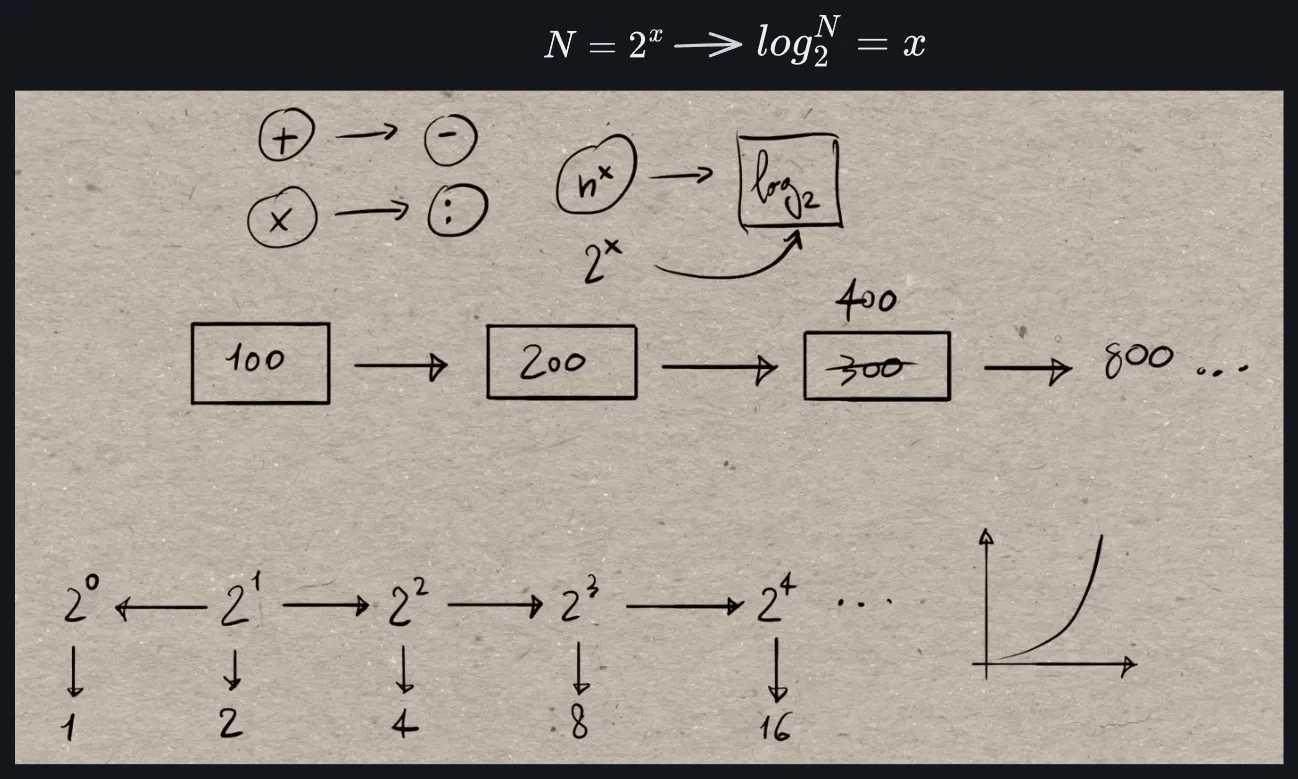 N = 2^x → log_2^N = x
+ → -
x → :
n^x → log_2
2^x
100 → 200 → ~~300~~ 400 → 800 ...
2^0 ← 2^1 → 2^2 → 2^3 → 2^4 ...
↓ ↓ ↓ ↓ ↓
1 2 4 8 16